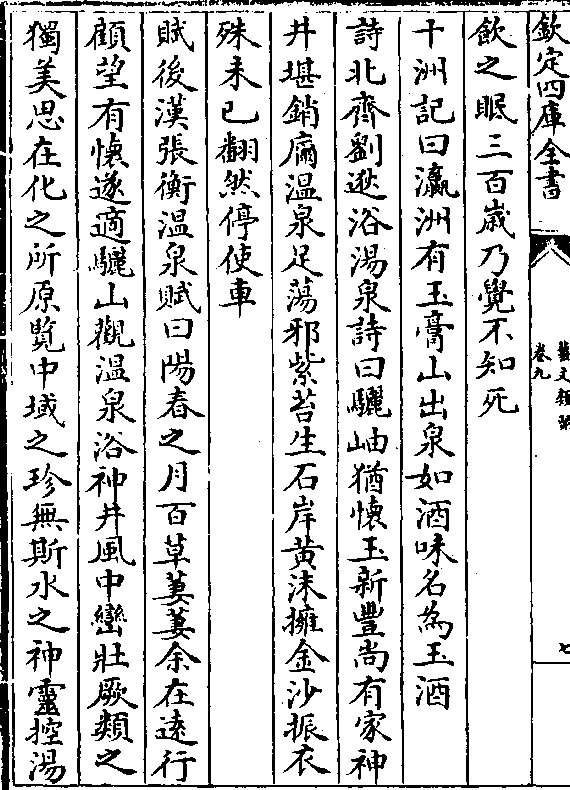 欽定四庫全書
藝文類聚
卷九
七
飲之眠三百歲乃覺不知死
十洲記曰瀛洲有玉膏山出泉如酒味名為玉酒
詩北齊劉逖浴湯泉詩曰驪岫猶懷玉新豐尚有家神
井堪銷疴溫泉足蕩邪紫苔生石岸黃沫擁金沙振衣
殊未已翻然停使車
賦後漢張衡溫泉賦曰陽春之月百草萋萋余在遠行
顧望有懷遂適驪山觀溫泉浴神井風中巒壯厥類之
獨美思在化之所原覽中域之珍無斯水之神靈控湯